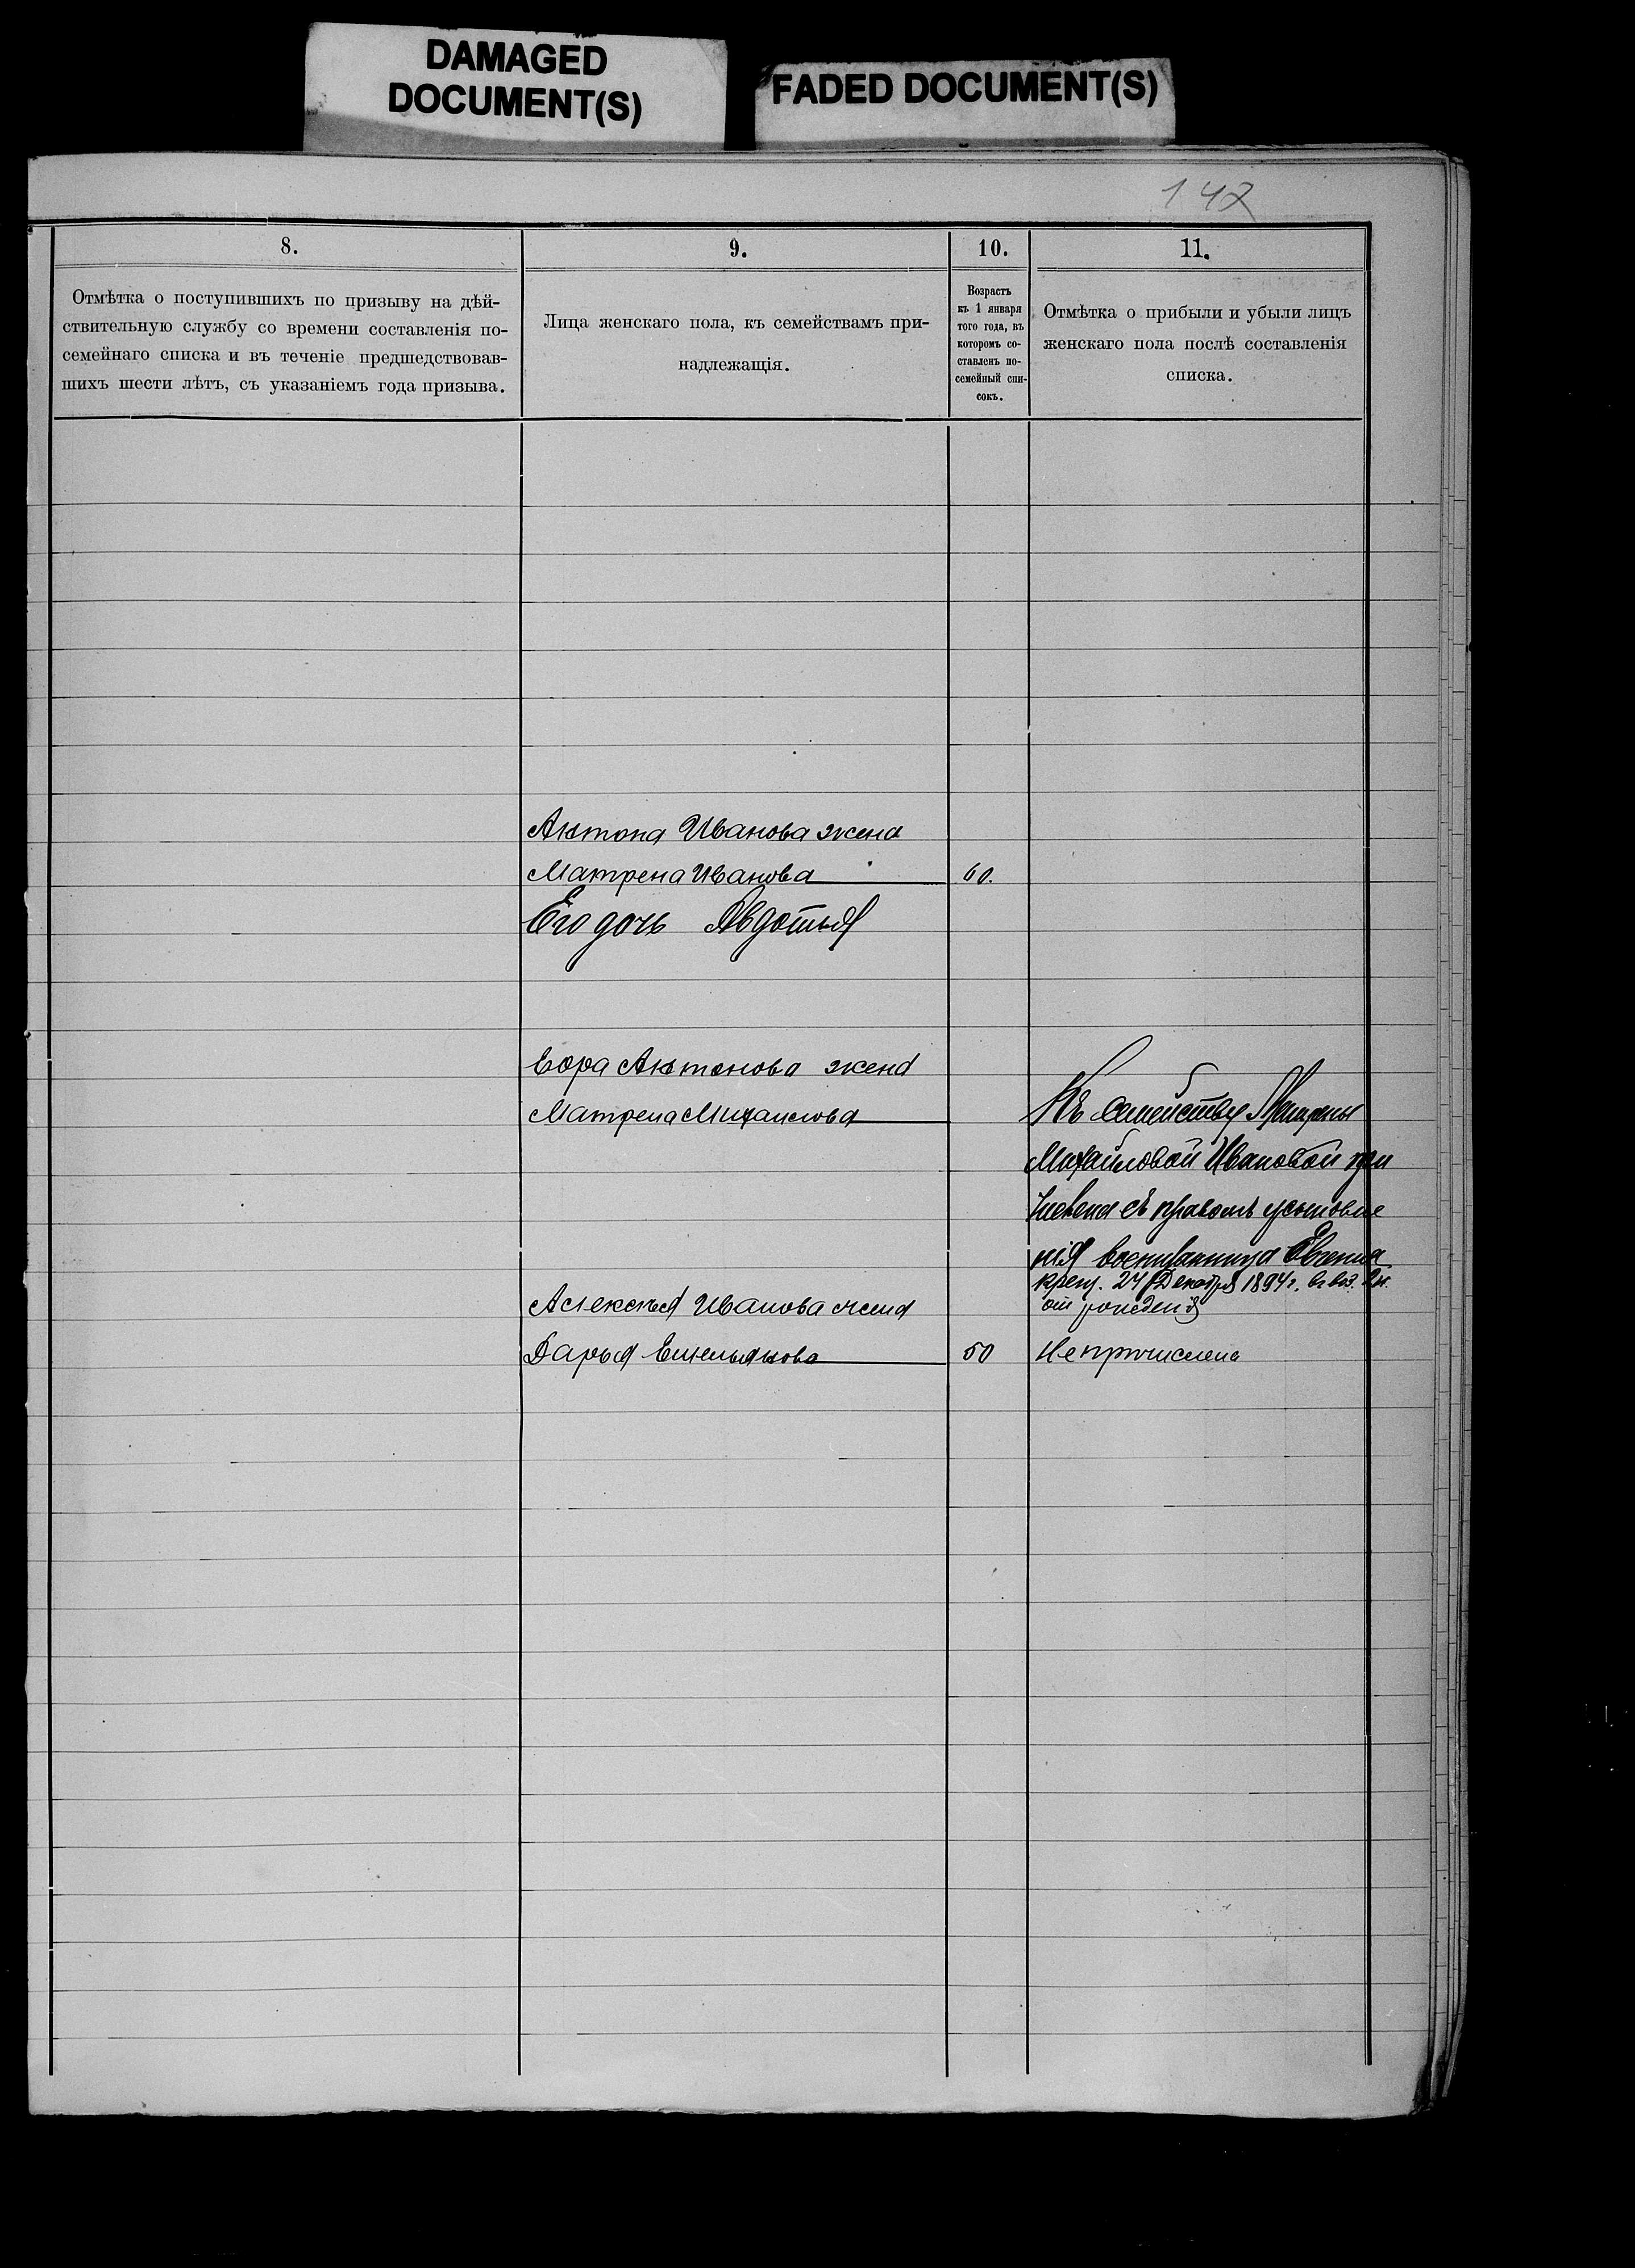 DAMAGED
DOCUMENT(S)
FADED DOCUMENT(S)
142
8.
9.
10.
11.
Отмѣтка о поступившихъ по призыву на дѣй-
ствительную службу со времени составленія по-
семейнаго списка и въ теченіе предшедствовав-
шихъ шести лѣтъ, съ указаніемъ года призыва.
Лица женскаго пола, къ семействамъ при-
надлежащія.
Возрастъ
къ 1 января
того года, въ
которомъ со-
ставленъ по-
семейный спи-
сокъ.
Отмѣтка о прибыли и убыли лицъ
женскаго пола послѣ составленія
списка.
Антона Иванова жена
Матрена Иванова 60.
Его дочь Авдотья
Егора Антонова жена
Матрена Михаилова
Къ семейству Матрены
Михайловой Ивановой при
числена съ правомъ усыновле
нія воспитанница Евгенія
крещ. 24 Декабря 1894 г.
отъ рожденія
Алексѣя Иванова жена
Дарья Емельянова 50 Не причислена